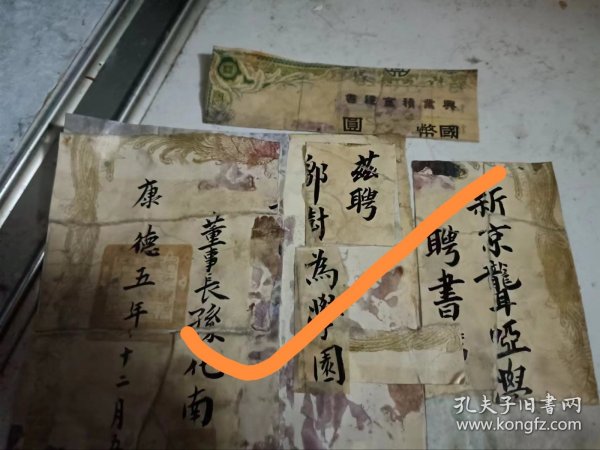 興業積金證書
國幣 圓
新京聾啞與
聘書
茲聘
鄒討為學園
董事長孫化南
康德五年十二月
孔夫子旧书网
www.kongfz.com